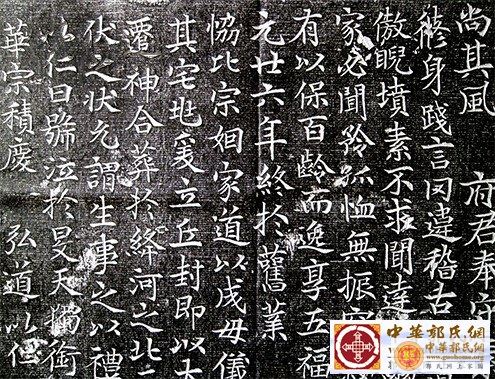 尚其風 府君奉守
脩身踐言罔違稽古
傲睨墳素不求聞達
家必聞矜孤恤無振
有以保百齡而逸享五福
元廿六年終於舊業
恊比宗姻家道以成母儀
其宅地爰立丘封即以
遷神合葬於絳河之北二
伏之状允謂生事之以禮
以仁日號泣於旻天獨銜
華宗積慶 弘道以
中華郭氏網
中華郭氏網
www.guohome.org